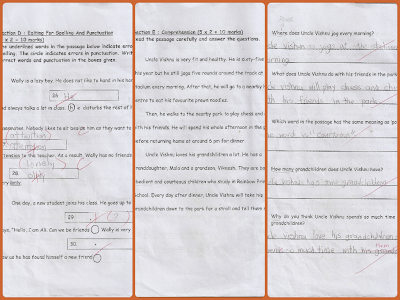 ction D : Editing For Spelling And Punctuation
x 2 = 10 marks)
he underlined words in the passage below indicate error
elling. The circle indicates errors in punctuation. Writ
rrect words and punctuation in the boxes given.
Wally is a lazy boy. He does not like to hand in his hom
26.
d always talks a lot in class. h e disturbs the rest of t
nobody likes to sit beside him as they want to
(attention)
tension to the teacher. As a result, Wally has no friends
(lonely)
28.
ery
One day, a new student joins his class. He goes up to
29.
ays, "Hello, I am Ali. Can we be friends Wally is very
30.
ow us he has found himself a new friend
ection E : Comprehension (5 x 2 = 10 marks)
ead the passage carefully and answer the questions.
Uncle Vishnu is very fit and healthy. He is sixty-five
his year but he still jogs five rounds around the track at
tadium every morning. After that, he will go to a nearby
entre to eat his favourite prawn noodles.
Then, he walks to the nearby park to play chess and
with his friends. He will spend his whole afternoon in the
efore returning home at around 6 pm for dinner.
Uncle Vishnu loves his grandchildren a lot. He has a
anddaughter, Mala and a grandson, Vikash. They are
bedient and courteous children who study in Rainbow Prim
chool. Every day after dinner, Uncle Vishnu will take his
randchildren down to the park for a stroll and tell them
Where does Uncle Vishnu jog every morning?
What does Uncle Vishnu do with his friends in the park
Uncle vishnu will play chess and
th his friends in the park
Which word in the passage has the same meaning as 'po
How many grandchildren does Uncle Vishnu have?
Why do you think Uncle Vishnu spends so much
grandchildren?
love his grandchildren
time with his